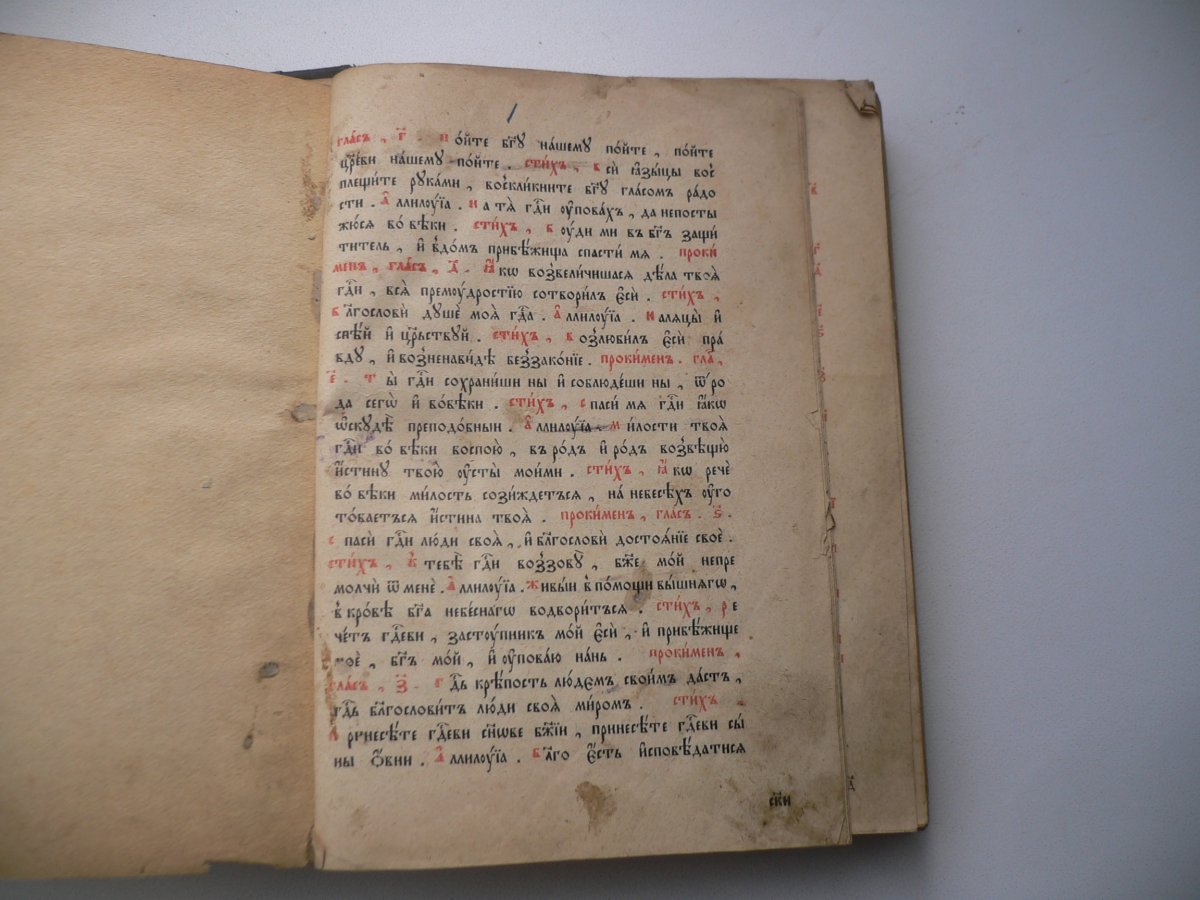 гла́съ , г҃ . по́йте бг҃у на́шему по́йте , по́йте
цр҃еви на́шему по́йте . сти́хъ , всѝ ꙗ҆зы́цы вос
плещи́те рука́ми , воскли́кните бг҃у гла́сомъ ра́до
сти . А҆ллилоу́їа . На тѧ̀ гд҇и оу҆пова́хъ , да непосты
жю́сѧ во́ вѣки . сти́хъ , воу́ди ми въ бг҃ъ защи́
титель , и҆ вдо́мъ прибѣ́жища спасти́ мѧ . проки́
менъ , гла́съ , д҃ . Ꙗ҆́кѡ возвели́чишасѧ дѣ́ла твоѧ̀
гд҇и , всѧ̀ премоу́дростїю сотвори́лъ є҆сѝ . сти́хъ ,
бл҃гословѝ душѐ моѧ̀ гд҇а . А҆ллилоу́їа . Налѧцы̀ и҆
спѣ́й и҆ цр҇ьствуй . сти́хъ , возлюби́лъ є҆сѝ пра́
вду , и҆ возненави́дѣ беззако́нїе . проки́менъ . гла ,
є҃ . ты̀ гд҇и сохрани́ши ны и҆ соблюде́ши ны , ѿ ро
да сегѡ̀ и҆ во́вѣки . сти́хъ , спаси́ мѧ гд҇и ꙗ҆́кѡ
ѡ҆скудѣ̀ преподо́бныи . А҆ллилоу́їа . ми́лости твоѧ̀
гд҇и во́ вѣки воспою̀ , въ ро́дъ и҆ ро́дъ возвѣщю̀
и҆́стину твою̀ оу҆сты̀ мои́ми . сти́хъ , ꙗ҆́кѡ речѐ
во́ вѣки ми́лость сози́ждетьсѧ , на́ небесѣхъ оу҆го
то́ваетьсѧ и҆́стина твоѧ̀ . проки́менъ , гла́съ . ѕ҃ .
спасѝ гд҇и лю́ди своѧ̀ , и҆ бл҃гословѝ достоѧ́нїе своѐ .
сти́хъ , к тебѣ̀ гд҇и воззову̀ , бж҃е мо́й непре
молчѝ ѿ менѐ . А҆ллилоу́їа . живы́и в по́мощи вы́шнѧгѡ ,
в кро́вѣ бг҃а небе́снагѡ водвори́тьсѧ . сти́хъ , ре
че́тъ гд҇еви , засто́упникъ мо́й є҆сѝ , и҆ прибѣ́жище
моѐ , бг҃ъ мо́й , и҆ оу҆пова́ю на́нь . проки́менъ ,
гла́съ , з҃ . гд҇ь крѣ́пость лю́демъ свои́мъ да́стъ ,
гд҇ь бл҃гослови́тъ лю́ди своѧ̀ ми́ромъ . сти́хъ .
принесѣ́те гд҇еви сн҃ове бж҃їи , принесѣ́те гд҇еви сы́
ны ѻ҆́вни . А҆ллилоу́їа . бл҃го є҆́сть и҆сповѣ́датисѧ